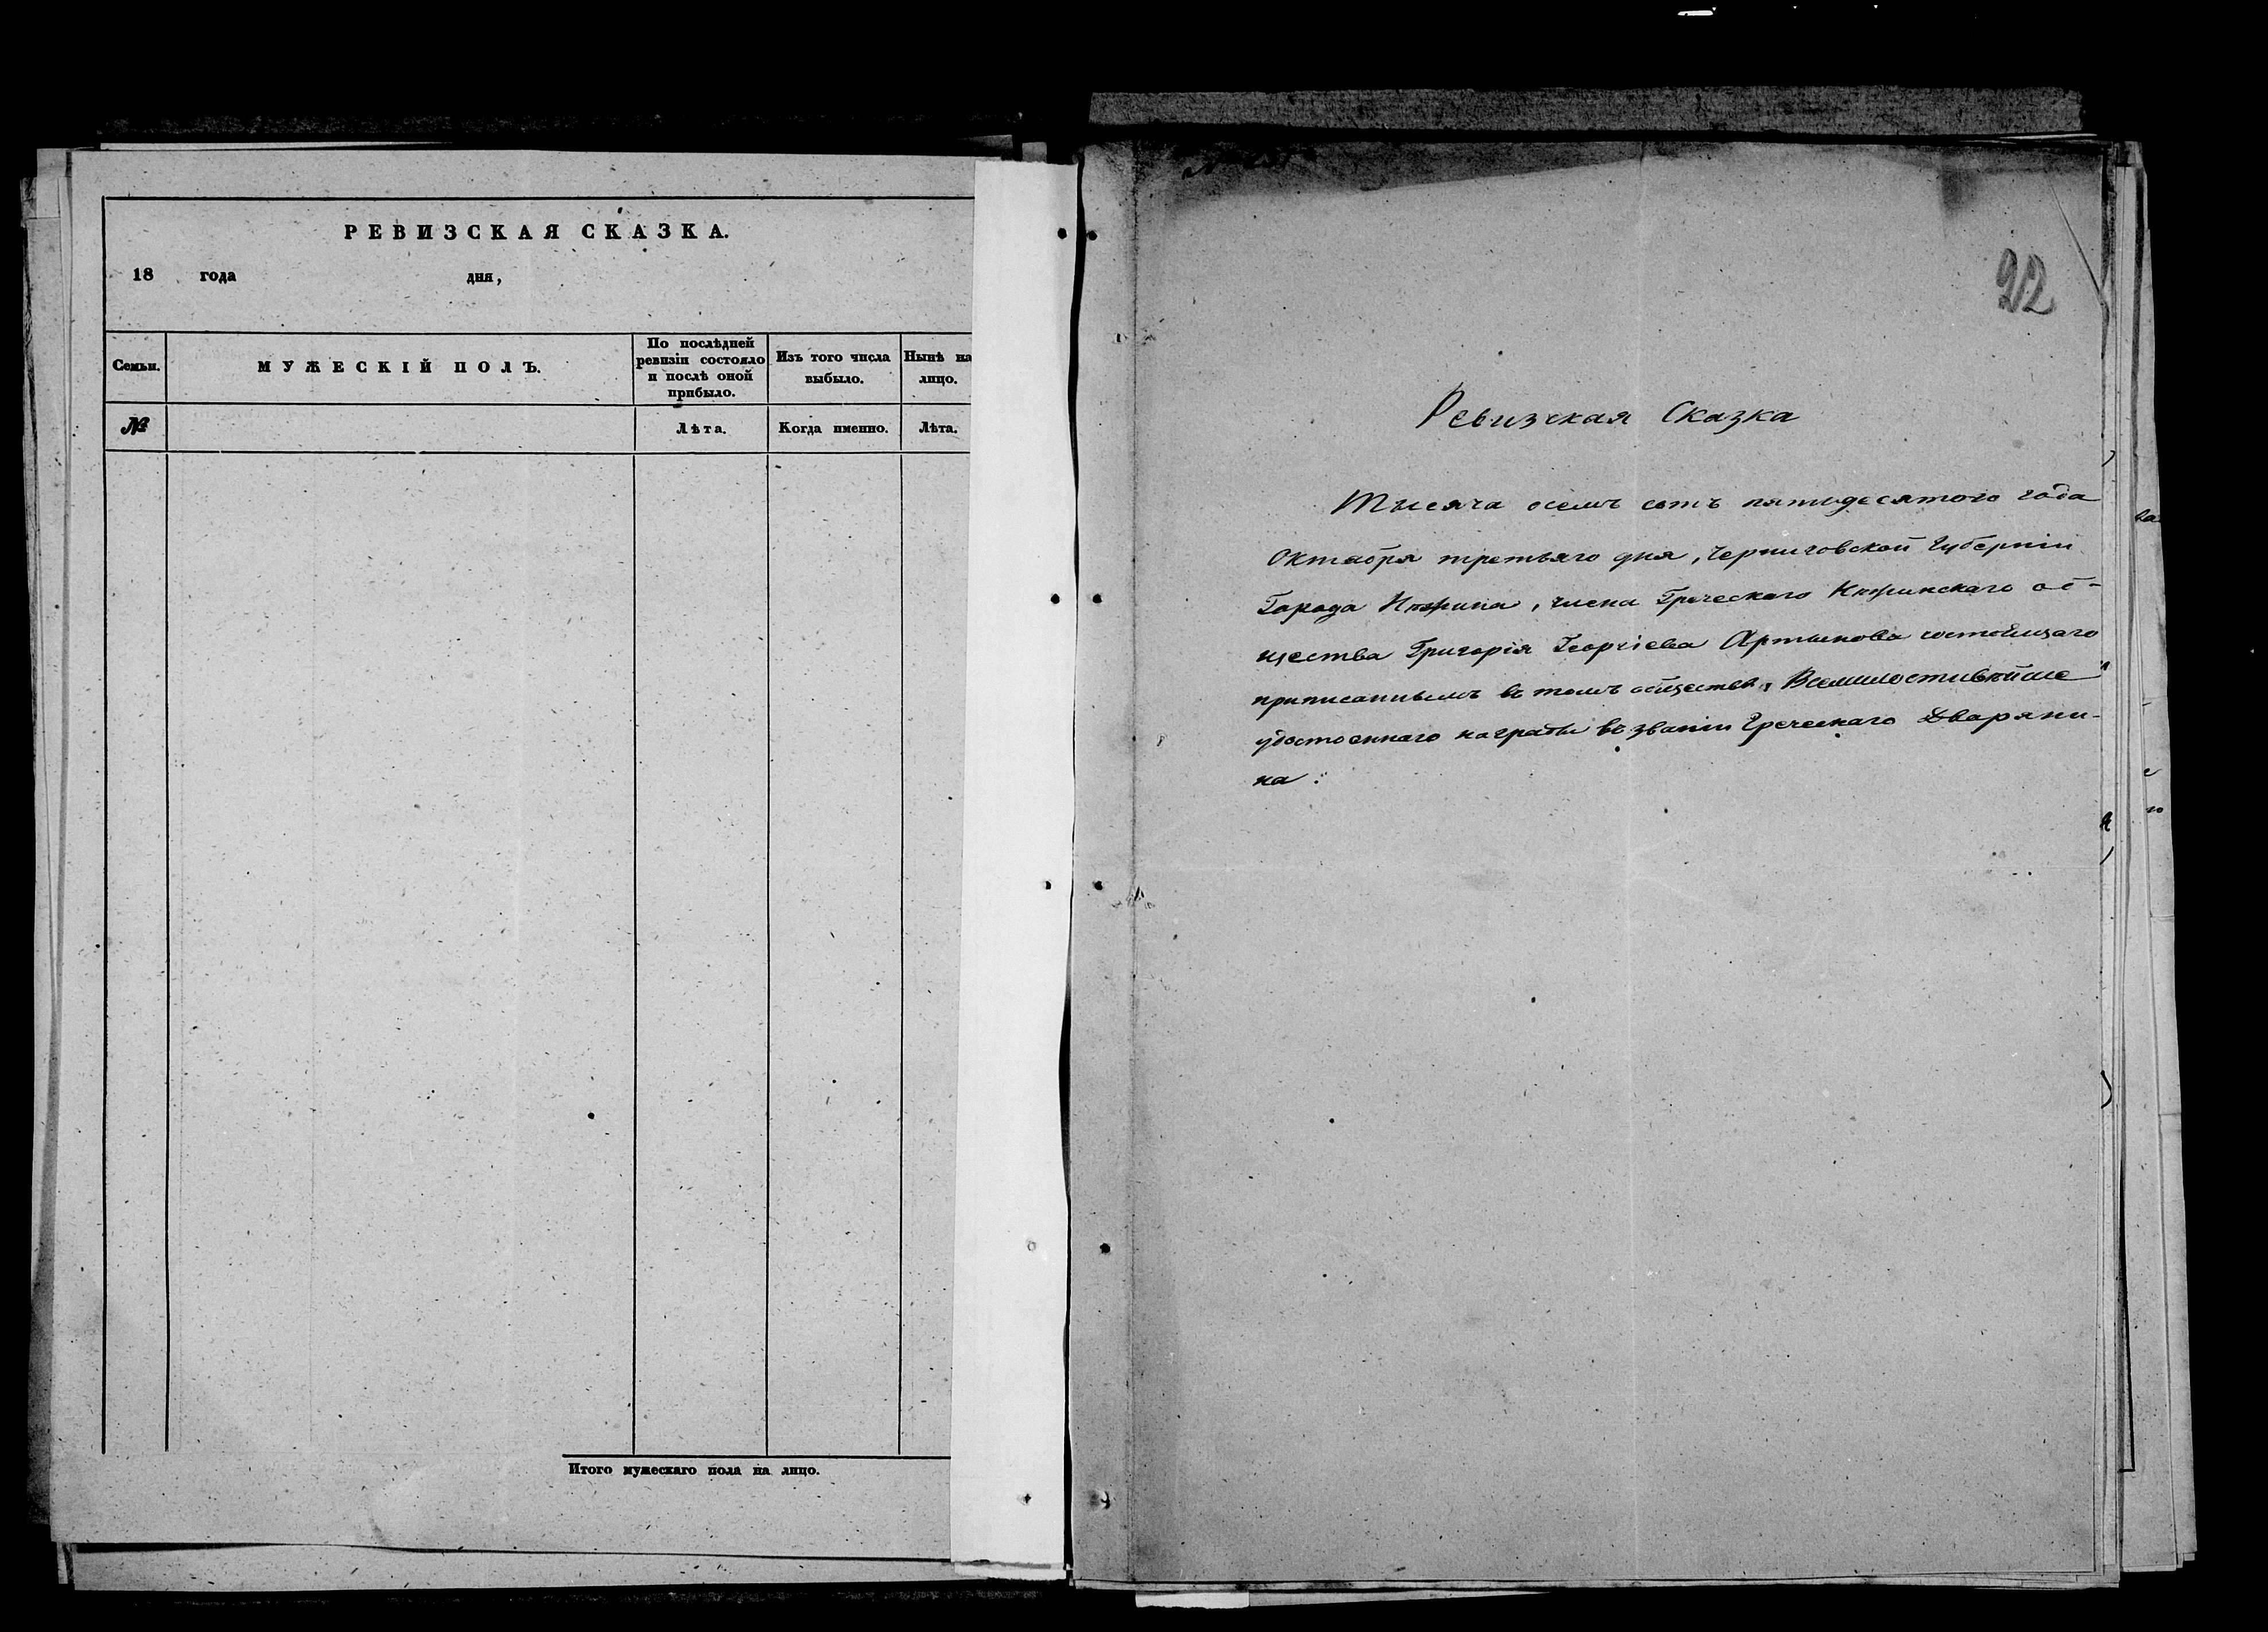 РЕВИЗСКАЯ СКАЗКА.
18 года дня,
Семьи.
МУЖЕСКІЙ ПОЛЪ.
По послѣдней
ревизіи состояло
и послѣ оной
прибыло.
Изъ того числа
выбыло.
Нынѣ на
лицо.
№
Лѣта.
Когда именно.
Лѣта.
Итого мужескаго пола на лицо.
22
Ревизская Сказка
Тысяча осемъ сотъ пятидесятого года
Октября третьяго дня, Черниговской Губерніи
Города Нѣжина, члена Греческого Нѣжинскаго об-
щества Григорія Георгіева Артынова состоящаго
приписаннымъ въ томъ обществѣ, Всемилостивѣйше
удостоеннаго награды въ званіи Греческаго Дваряни-
на: